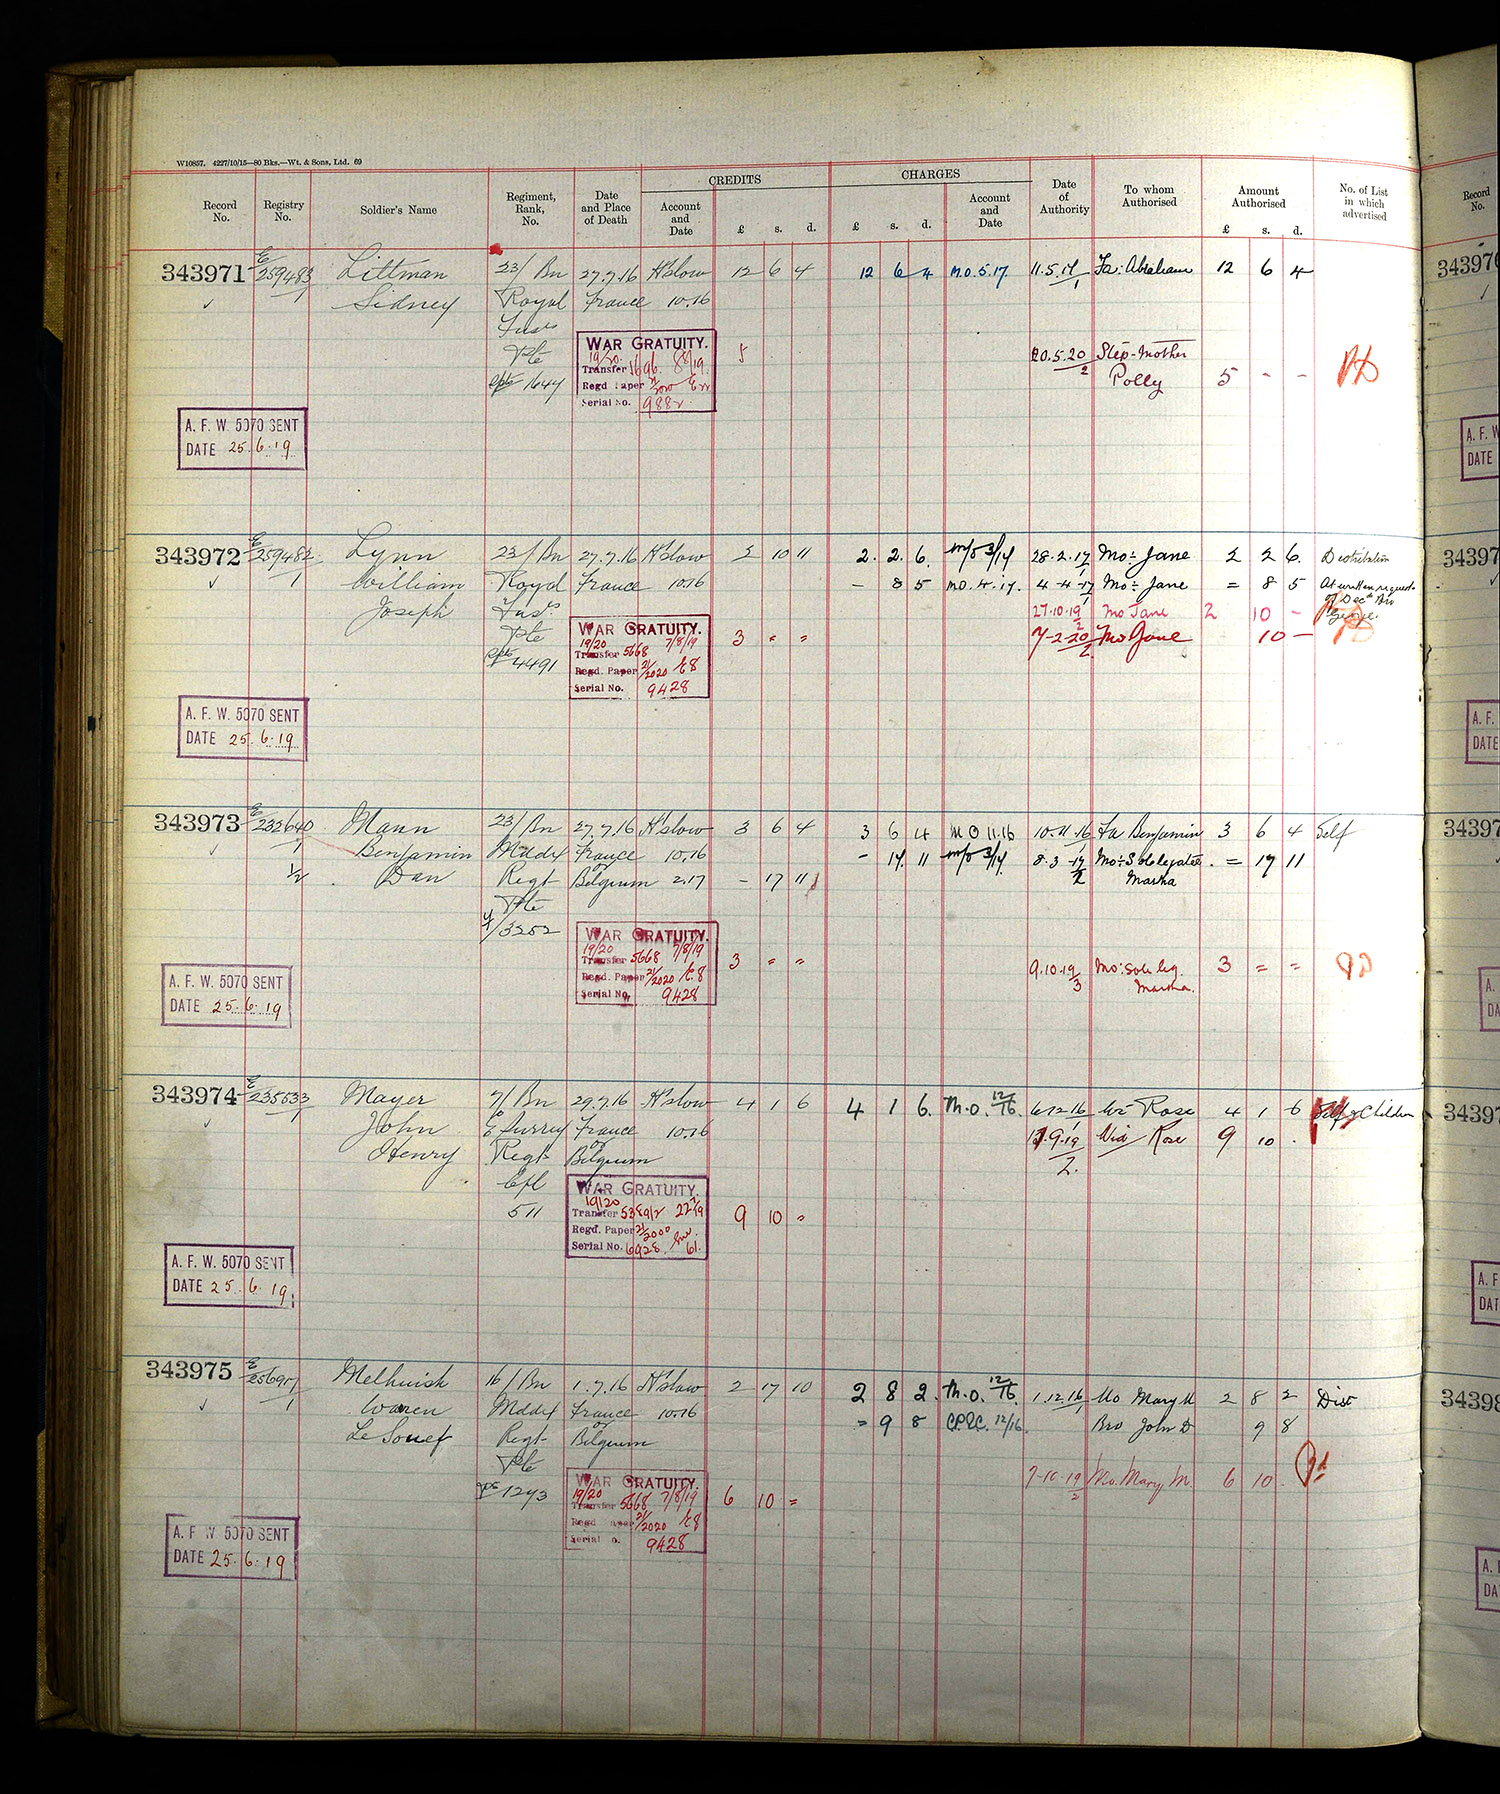 W10857. 4227/10/15—80 Bks.—Wt. & Sons, Ltd. 69
Record No. Registry No. Soldier's Name Regiment, Rank, No. Date and Place of Death CREDITS Account and Date £ s. d. CHARGES £ s. d. Account and Date Date of Authority To whom Authorised Amount Authorised £ s. d. No. of List in which advertised
343971 E 259483/1 Littman 23/Bn 27.7.16 H'slow 12 6 4 12 6 4 M.O.5.17 11.5.17/1 Fa: Abraham 12 6 4
Sidney Royal France 10.16
Fusrs
Pte WAR GRATUITY. 5 20.5.20/2 Step-Mother
1644 19/20 Transfer 8/19 Polly 5 - -
Regd Paper
Serial No. 9882
A. F. W. 5070 SENT
DATE 25.6.19
343972 E 259482/1 Lynn 23/Bn 27.7.16 H'slow 2 10 11 2. 2. 6. 28.2.17/1 Mo: Jane 2 2 6. Distribution
William Royal France 10.16 - 8 5 M.O.4.17. 4-4-17/1 Mo: Jane = 8 5 At written request
Joseph Fusrs 27.10.19/2 Mo Jane 2 10 - of Decd Bro George.
Pte WAR GRATUITY. 3 " " 7-2-20/2 Mo Jane 10 -
4491 19/20 7/8/19
Transfer 5668
Regd. Paper 21/2020 E8
Serial No. 9428
A. F. W. 5070 SENT
DATE 25.6.19
343973 E 232640/1 Mann 23/Bn 27.7.16 H'slow 3 6 4 3 6 4 M O 11.16 10.11.16/1 Fa Benjamin 3 6 4 Self
Benjamin Mddx France 10.16 - 17. 11 8.3.17/2 Mo: Sole legatee = 17 11
1/2 Dan Regt or Belgium 2.17 - 17 11 Martha
Pte
3252 WAR GRATUITY.
19/20 7/8/19
Transfer 5668 3 " " 9.10.19/3 Mo: sole leg. 3 = =
Regd. Paper 21/2020 E.8 Martha.
Serial No. 9428
A. F. W. 5070 SENT
DATE 25.6.19
343974 E 235533/1 Mayer 7/Bn 29.7.16 H'slow 4 1 6 4 1 6. M.O. 12/16. 6.12.16/1 Wi: Rose 4 1 6 Self & Children
John E Surrey France 10.16 19.19/2. Wid Rose 9 10 .
Henry Regt or Belgium
Cpl WAR GRATUITY.
511 19/20
Transfer 9 10 "
Regd. Paper 21/2000
Serial No. 6928 61.
A. F. W. 5070 SENT
DATE 25.6.19
343975 E 256917/1 Melhuish 16/Bn 1.7.16 H'slow 2 17 10 2 8 2. M.O. 12/16. 1.12.16/1 Mo Mary M 2 8 2 Dist
Warren Mddx France 10.16 = 9 8 12/16. Bro John D 9 8
Le Souef Regt or Belgium
Pte 7-10-19/2 Mo. Mary M. 6 10 .
1293 WAR GRATUITY.
19/20 7/8/19
Transfer 5668 6 10 =
Regd Paper 21/2020 E8
Serial No. 9428
A. F. W. 5070 SENT
DATE 25.6.19
Record No.
343976
A. F. W
DATE
34397
A. F.
DATE
34397
A.
DA
34397
A. F
DAT
34398
A. F
DA